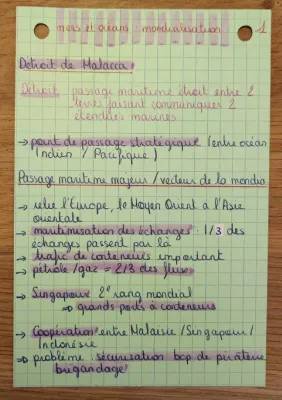 mers et océans : mondialisation
1
Détroit de Malacca :
Détroit : passage maritime étroit entre 2
terres faisant communiquer 2
étendues marines
→ point de passage stratégique (entre océan
Indien / Pacifique)
Passage maritime majeur / vecteur de la mondia
→ relie l'Europe, le Moyen Orient à l'Asie
orientale
→ maritimisation des échanges : 1/3 des
échanges passent par là
→ trafic de conteneurs important
→ pétrole/gaz = 2/3 des flux
→ Singapour 2e rang mondial
⇒ grands ports à conteneurs
→ Coopération entre Malaisie / Singapour /
Indonésie
⇒ problème : sécurisation bcp de piraterie
brigandage